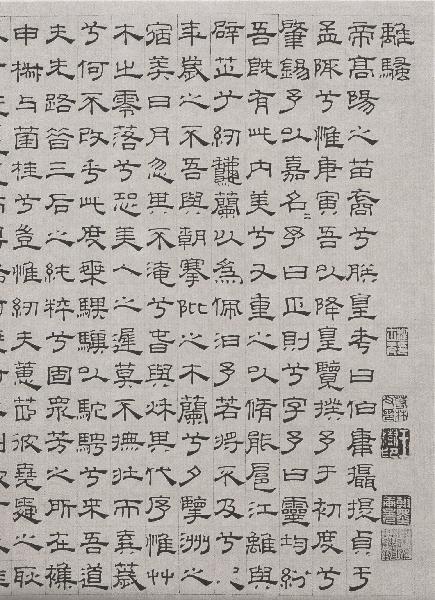 離騷
帝高陽之苗裔兮朕皇考曰伯庸攝提貞于
孟陬兮惟庚寅吾以降皇覽揆予于初度兮
肇錫予以嘉名〻予曰正則兮字予曰靈均紛
吾旣有此內美兮又重之以脩能扈江離與
辟芷兮紉龝蘭以為佩汩予若將不及兮
年歲之不吾與朝搴阰之木蘭兮夕擥洲之
宿莽日月忽其不淹兮春與秋其代序惟艸
木之零落兮恐美人之遲莫不撫壯而棄薉
兮何不改乎此度乘騏驥以駝騁兮來吾道
夫先路昔三后之純粹兮固眾芳之所在雜
申椒与菌桂兮豈惟紉夫蕙茝彼堯舜之耿